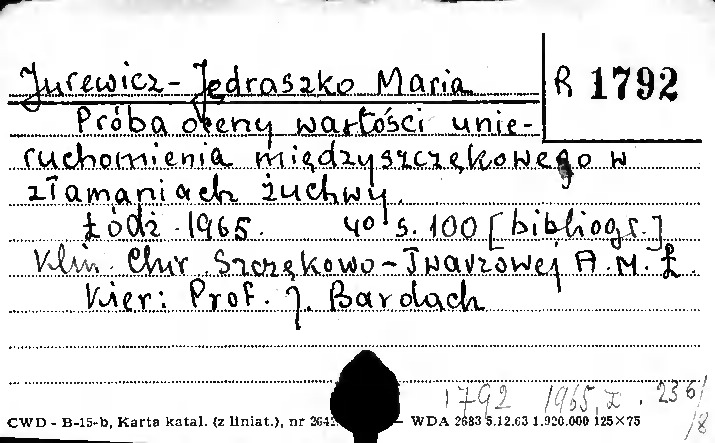 Jurewicz-Jędraszko Maria
R 1792
Próba oceny wartości unie-
ruchomienia międzyszczękowego w
złamaniach żuchwy.
Łódź 1965. 4° s. 100 [bibliogr.]
Klin. Chir. Szczękowo-Twarzowej A.M.Ł.
Kier: Prof. J. Bardach
1792 1965, I. 236/8
CWD - B-15-b, Karta katal. (z liniat.), nr 264 — WDA 2683 5.12.63 1.920.000 125×75